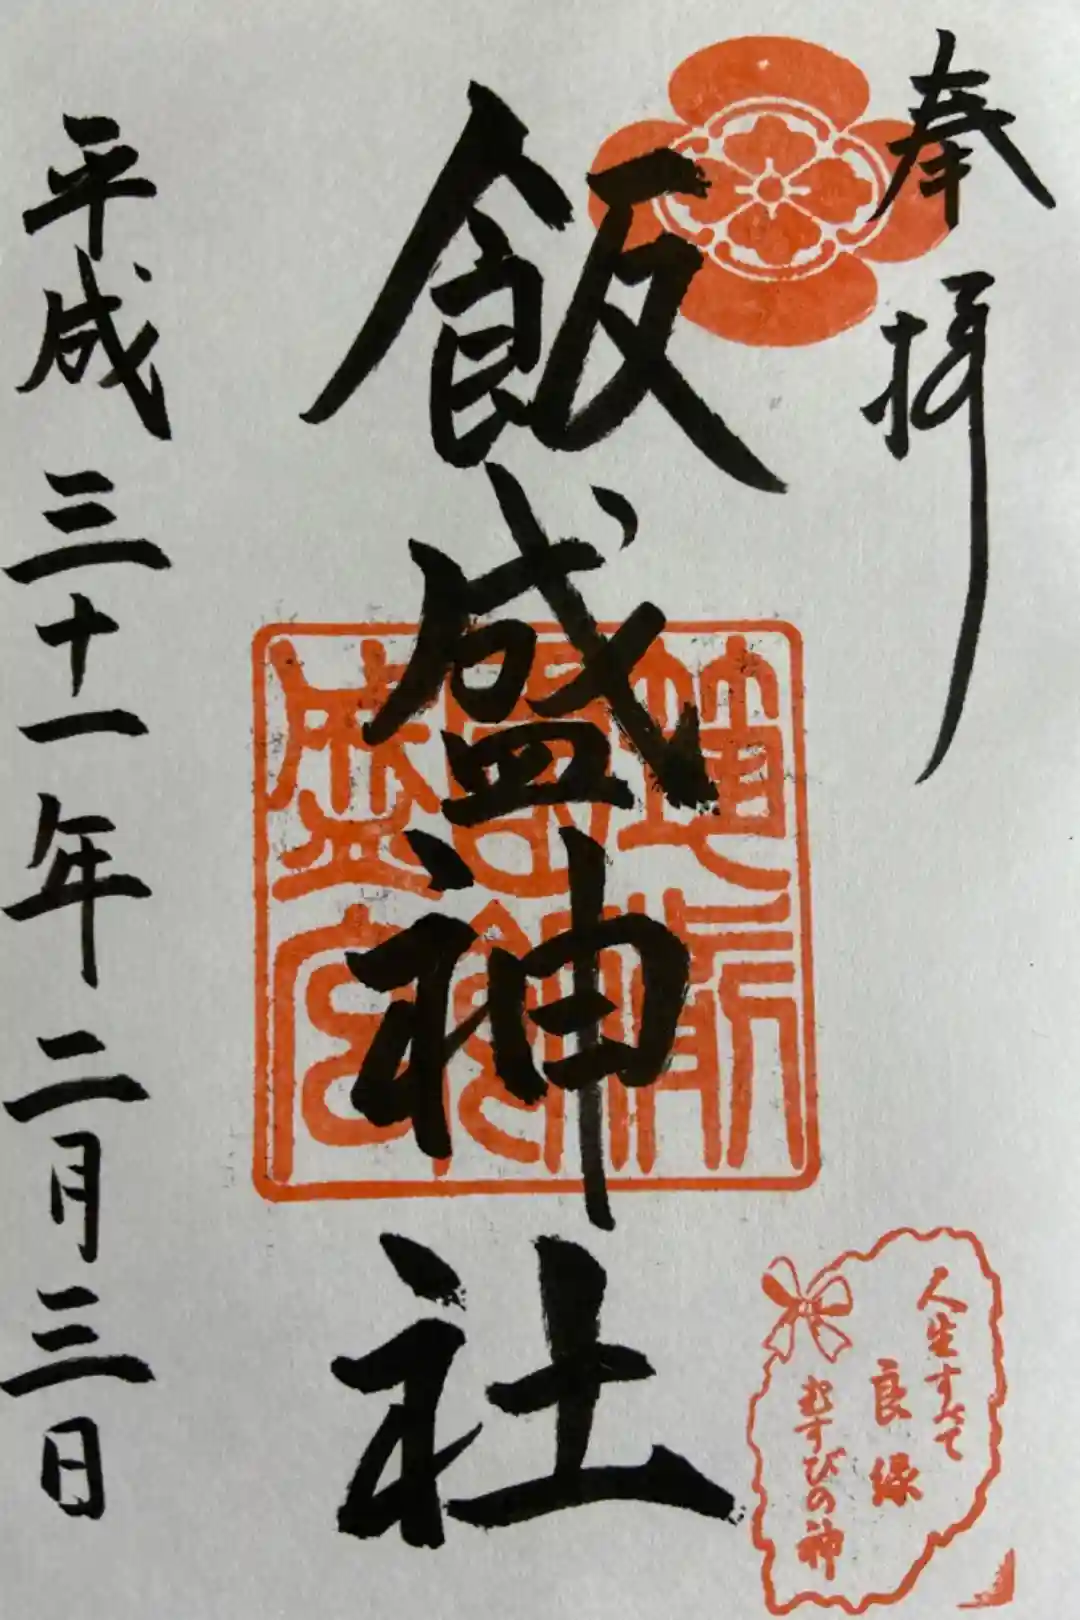 奉拝
飯盛神社
平成三十一年二月三日
人生すべて
良縁
むすびの神